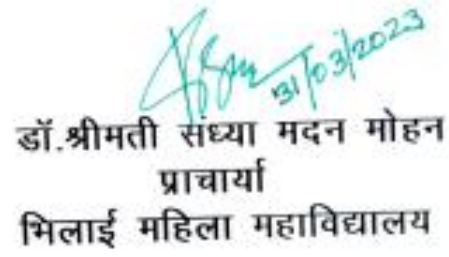 31/03/2023
डॉ.श्रीमती संध्या मदन मोहन
प्राचार्या
भिलाई महिला महाविद्यालय